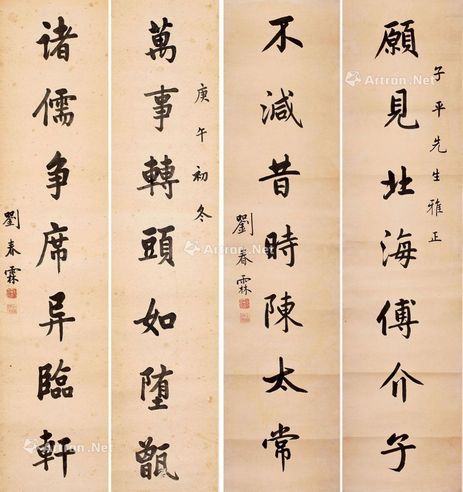 子平先生雅正
願見北海傅介子
不減昔時陳太常
劉春霖
庚午初冬
萬事轉頭如墮甑
諸儒争席异臨軒
劉春霖
Artron.Net
Artron.Net
Artron.Net